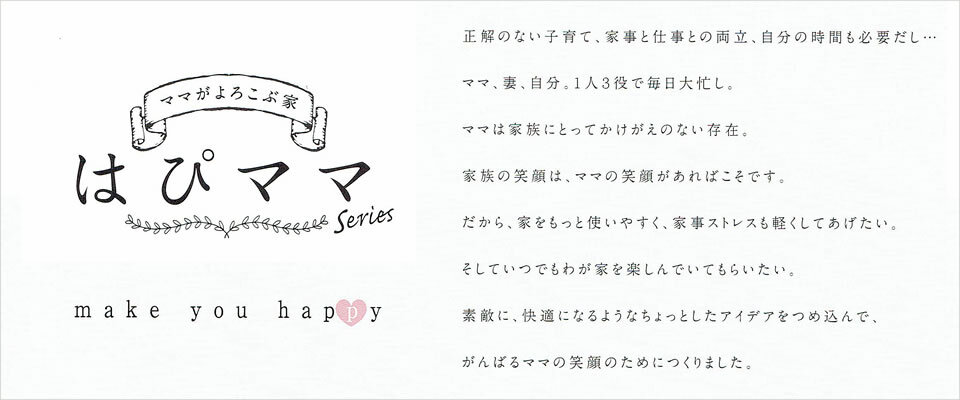 ママがよろこぶ家
はぴママ
Series
make you happy
正解のない子育て、家事と仕事との両立、自分の時間も必要だし…
ママ、妻、自分。1人3役で毎日大忙し。
ママは家族にとってかけがえのない存在。
家族の笑顔は、ママの笑顔があればこそです。
だから、家をもっと使いやすく、家事ストレスも軽くしてあげたい。
そしていつでもわが家を楽しんでいてもらいたい。
素敵に、快適になるようなちょっとしたアイデアをつめ込んで、
がんばるママの笑顔のためにつくりました。